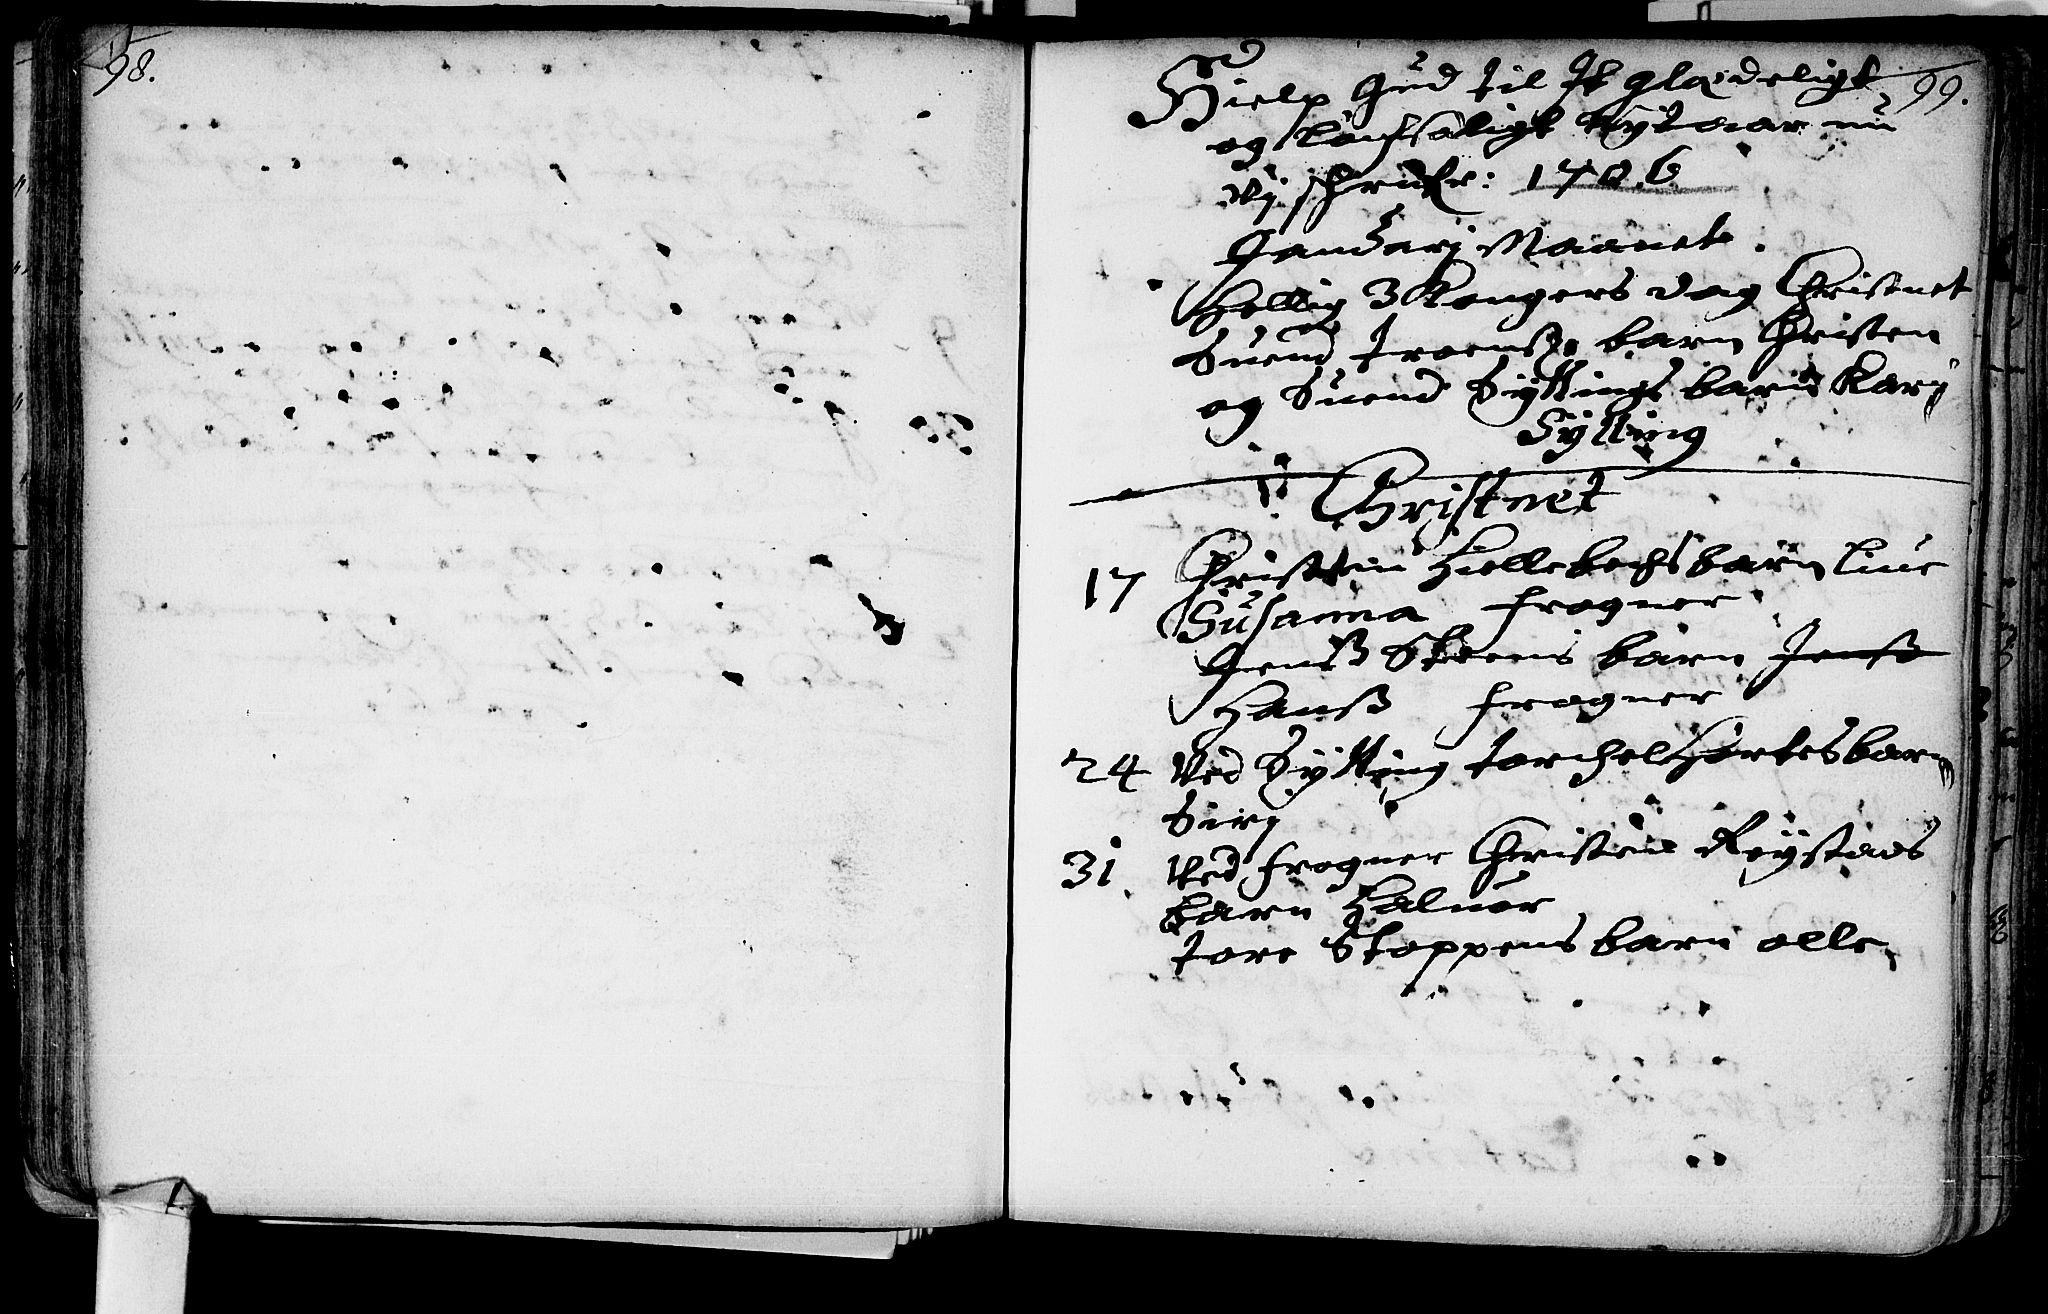 98.
99.
Hielp Gud til Et glædeligt
og løchsaligt Nyt aar nu
Vij schrifr: 1706
Januarij Maanet.
Hellig 3 Kongers dag Christnet
Suend Iroenß barn Christen
og Suend Syllings barn Karj
Sylling
Christnet
17 Christen Hiellebechs barn Liue
Susanna frogner
Jenß Steens barn Jenß
Hanß frogner
24 Ved Sylling Torchel Hørtes barn
Sirj
31. Ved frogner Christen Røystads
barn Haluor
Tore Stoppens barn olle